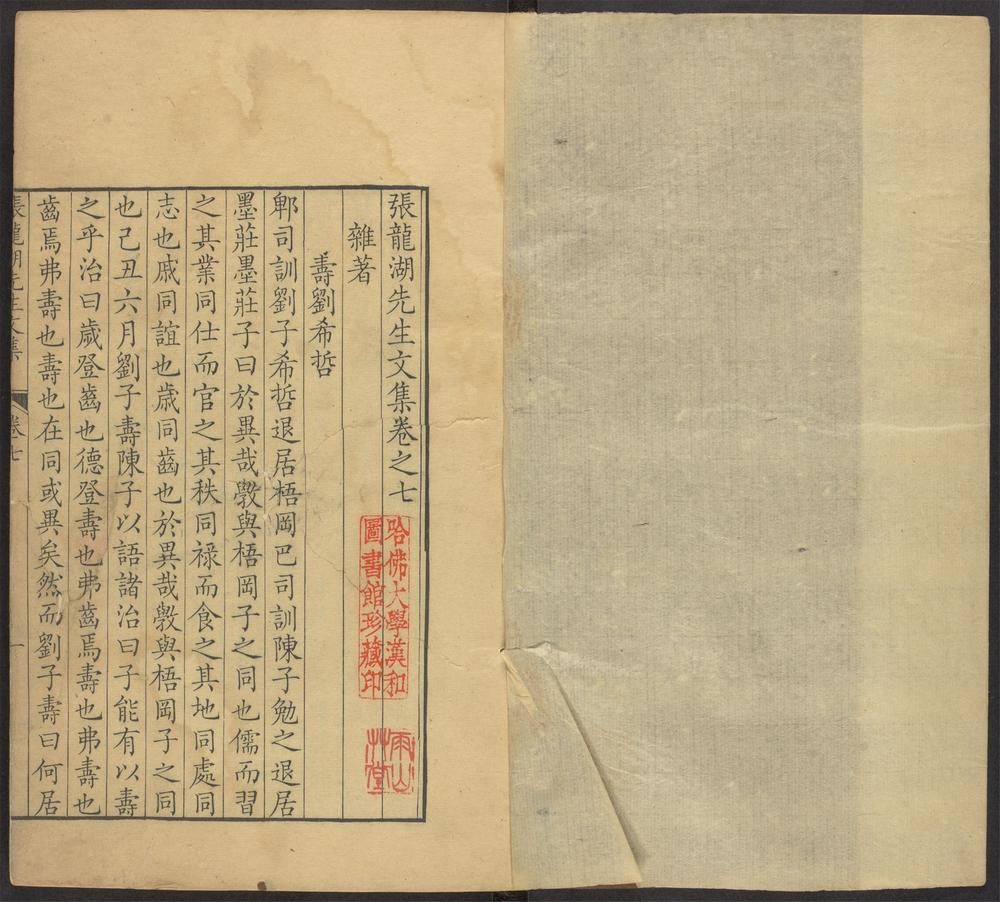 張龍湖先生文集卷之七
哈佛大學漢和
圖書館珍藏印
雨山
艸堂
雜著
壽劉希哲
郫司訓劉子希哲退居梧岡巴司訓陳子勉之退居
墨莊墨莊子曰於異哉斅與梧岡子之同也儒而習
之其業同仕而官之其秩同祿而食之其地同處同
志也戚同誼也歲同齒也於異哉斅與梧岡子之同
也己丑六月劉子壽陳子以語諸治曰子能有以壽
之乎治曰歲登齒也德登壽也弗齒焉壽也弗壽也
齒焉弗壽也壽也在同或異矣然而劉子壽曰何居
張龍湖先生文集
卷七
一